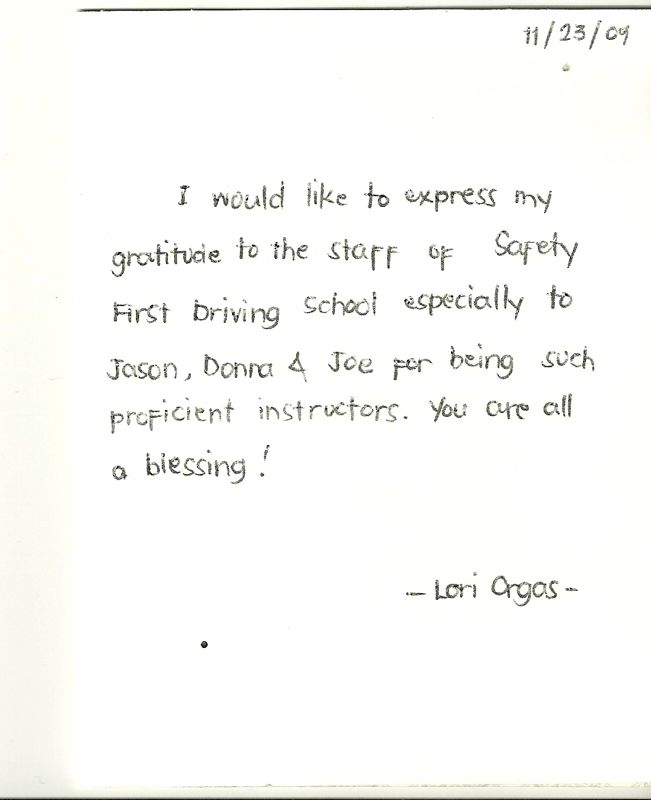 11/23/09
I would like to express my
gratitude to the staff of Safety
First Driving School especially to
Jason, Donna & Joe for being such
proficient instructors. You are all
a blessing!
- Lori Orgas -